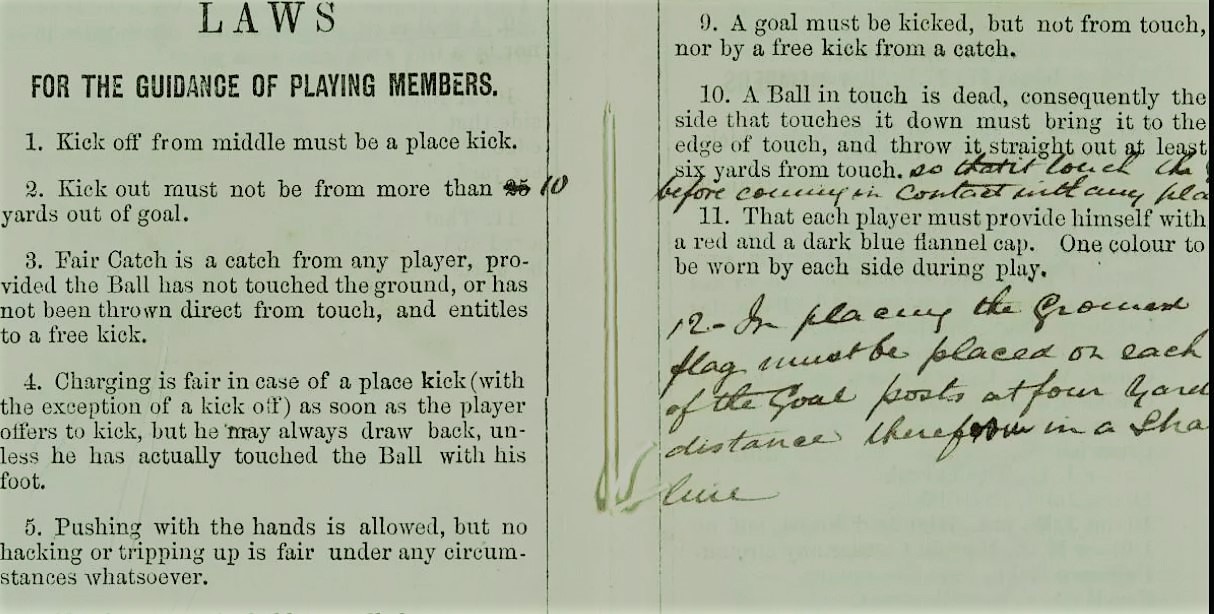 LAWS
FOR THE GUIDANCE OF PLAYING MEMBERS.
1. Kick off from middle must be a place kick.
2. Kick out must not be from more than 25 10
yards out of goal.
3. Fair Catch is a catch from any player, pro-
vided the Ball has not touched the ground, or has
not been thrown direct from touch, and entitles
to a free kick.
4. Charging is fair in case of a place kick (with
the exception of a kick off) as soon as the player
offers to kick, but he may always draw back, un-
less he has actually touched the Ball with his
foot.
5. Pushing with the hands is allowed, but no
hacking or tripping up is fair under any circum-
stances whatsoever.
9. A goal must be kicked, but not from touch,
nor by a free kick from a catch.
10. A Ball in touch is dead, consequently the
side that touches it down must bring it to the
edge of touch, and throw it straight out at least
six yards from touch. so that it touch the
before coming in contact with any pla
11. That each player must provide himself with
a red and a dark blue flannel cap. One colour to
be worn by each side during play.
12- In placing the Ground
flag must be placed on each
of the Goal posts at four yard
distance therefrom in a
line